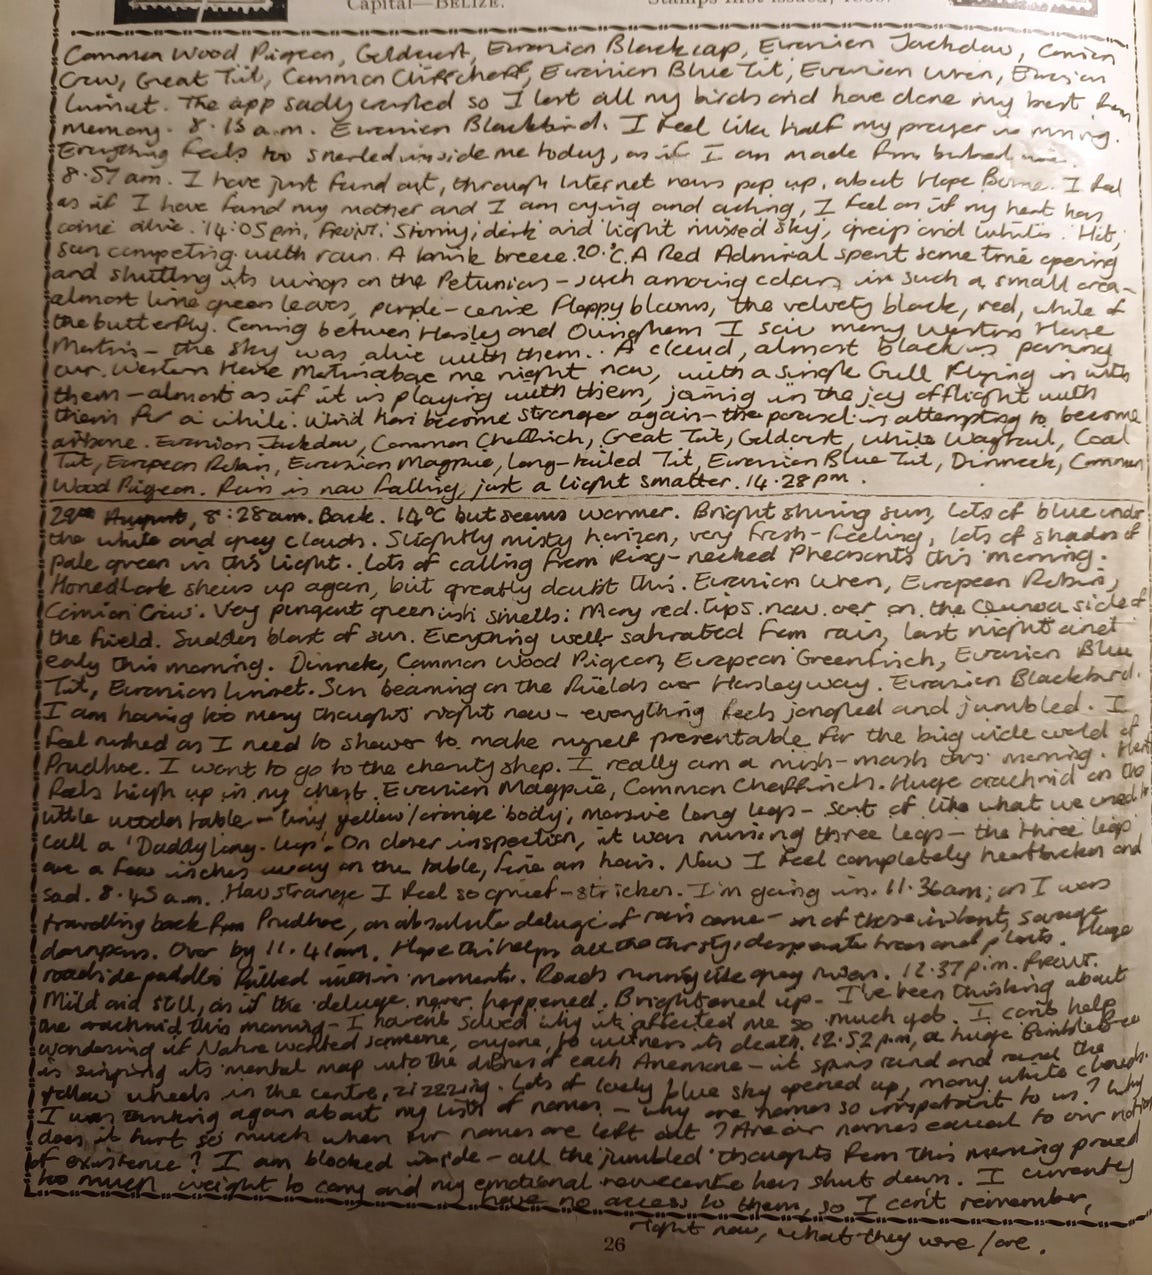 Capital—BELIZE.
Stamps first issued,
Common Wood Pigeon, Goldcrest, Eurasian Blackcap, Eurasian Jackdaw, Carrion
Crow, Great Tit, Common Chiffchaff, Eurasian Blue Tit, Eurasian Wren, Eurasian
Linnet. The app sadly crashed so I lost all my birds and have done my best from
memory. 8.15 a.m. Eurasian Blackbird. I feel like half my prayer is missing.
Everything feels too snarled inside me today, as if I am made from barbed wire.
8.57am. I have just found out, through Internet news pop up, about Hope Bourne. I feel
as if I have found my mother and I am crying and aching, I feel as if my heart has
come alive. 14:05pm, FRONT. Stormy, dark and light mixed sky, greys and whites. Hot,
sun competing with rain. A brisk breeze. 20°C. A Red Admiral spent some time opening
and shutting its wings on the Petunias - such amazing colours in such a small area-
almost lime green leaves, purple-cerise floppy blooms, the velvety black, red, white of
the butterfly. Coming between Horsley and Ovingham I saw many Western House
Martins - the sky was alive with them. A cloud, almost black is passing
over. Western House Martins above me right now, with a single Gull flying in with
them - almost as if it is playing with them, joining in the joy of flight with
them for a while. Wind has become stronger again - the parasol is attempting to become
airborne. Eurasian Jackdaw, Common Chaffinch, Great Tit, Goldcrest, White Wagtail, Coal
Tit, European Robin, Eurasian Magpie, Long-tailed Tit, Eurasian Blue Tit, Dunnock, Common
Wood Pigeon. Rain is now falling, just a light smatter. 14.28pm.
29th August, 8:28am. Back. 14°C but seems warmer. Bright shining sun, lots of blue under
the white and grey clouds. Slightly misty horizon, very fresh-feeling, lots of shades of
pale green in this light. Lots of calling from Ring-necked Pheasants this morning.
Horned Lark shows up again, but greatly doubt this. Eurasian Wren, European Robin,
Carrion Crow. Very pungent greenish smells: Many red tips now over on the side of
the field. Sudden blast of sun. Everything well-saturated from rain, last night and
early this morning. Dunnock, Common Wood Pigeon, European Greenfinch, Eurasian Blue
Tit, Eurasian Linnet. Sun beaming on the fields over Horsley way. Eurasian Blackbird.
I am having too many thoughts right now - everything feels jangled and jumbled. I
feel rushed as I need to shower to make myself presentable for the big wide world of
Prudhoe. I want to go to the charity shop. I really am a mish-mash this morning. Heart
feels high up in my chest. Eurasian Magpie, Common Chaffinch. Huge arachnid on the
little wooden table - tiny yellow/orange body, massive long legs - sort of like what we used to
call a 'Daddy Long-Legs'. On closer inspection, it was missing three legs - the three legs
are a few inches away on the table, fine as hairs. Now I feel completely heartbroken and
sad. 8.45 a.m. How strange I feel so grief-stricken. I'm going in. 11.36am; as I was
travelling back from Prudhoe, an absolute deluge of rain came - one of those violent, savage
downpours. Over by 11.41am. Hope this helps all the thirsty, desperate trees and plants. Huge
roadside puddles filled within moments. Roads running like grey rivers. 12.37p.m. FRONT.
Mild and still, as if the deluge never happened. Brightened up - I've been thinking about
the arachnid this morning - I haven't solved why it affected me so much yet. I can't help
wondering if Nature wanted someone, anyone, to witness its death. 12.52p.m, a huge Bumblebee
is singing its mental map into the dishes of each Anemone - it spins round and round the
yellow wheels in the centre, zizzzing. Lots of lovely blue sky opened up, many white clouds.
I was thinking again about my lists of names - why are names so important to us? Why
does it hurt so much when our names are left out? Are our names equal to our notion
of existence? I am blocked inside - all the jumbled thoughts from this morning proved
too much weight to carry and my emotional has shut down. I currently
have no access to them, so I can't remember,
right now, what they were/are.
26